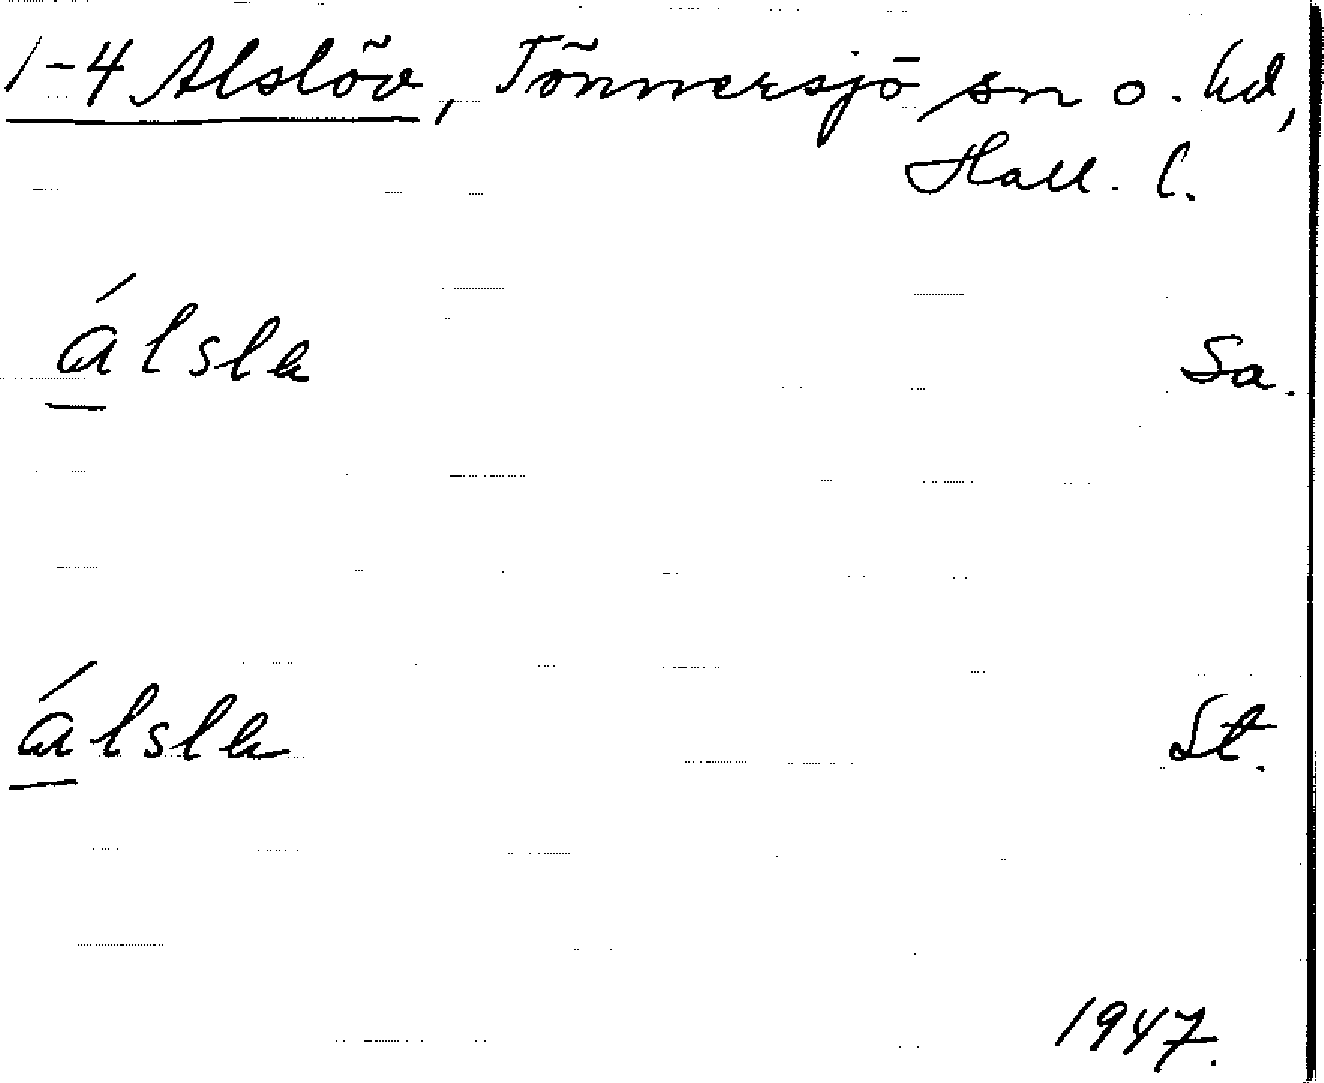 1-4 Alslöv, Tönnersjö sn o. hd,
Hall. l.
álslə Sa.
álslə St.
1947.